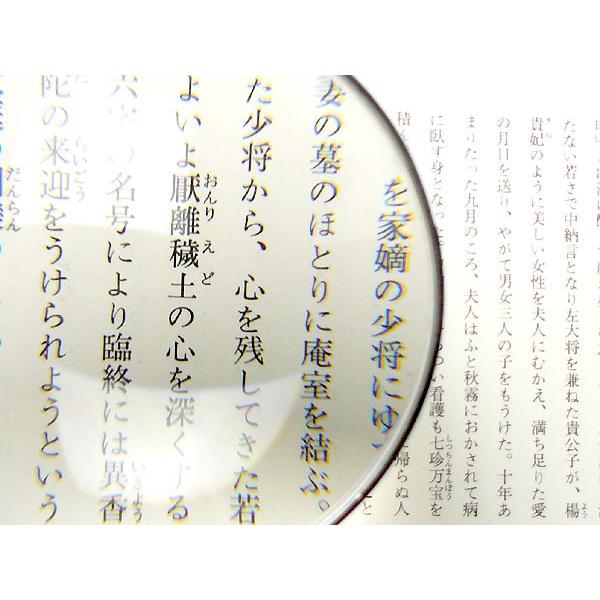 たない若さで中納言となり左大将を兼ねた貴公子が、楊
貴妃のように美しい女性を夫人にむかえ、満ち足りた愛
の月日を送り、やがて男女三人の子をもうけた。十年あ
まりたった九月のころ、夫人はふと秋霧におかされて病
に臥す身となった
看護も七珍万宝を
しっちんまんぽう
積
帰らぬ人
と
を家嫡の少将にゆ
妻の墓のほとりに庵室を結ぶ。
た少将から、心を残してきた若
よいよ厭離穢土の心を深くする
おんりえど
の名号により臨終には異香
いきょう
陀の来迎をうけられようという
らいごう
だんらん